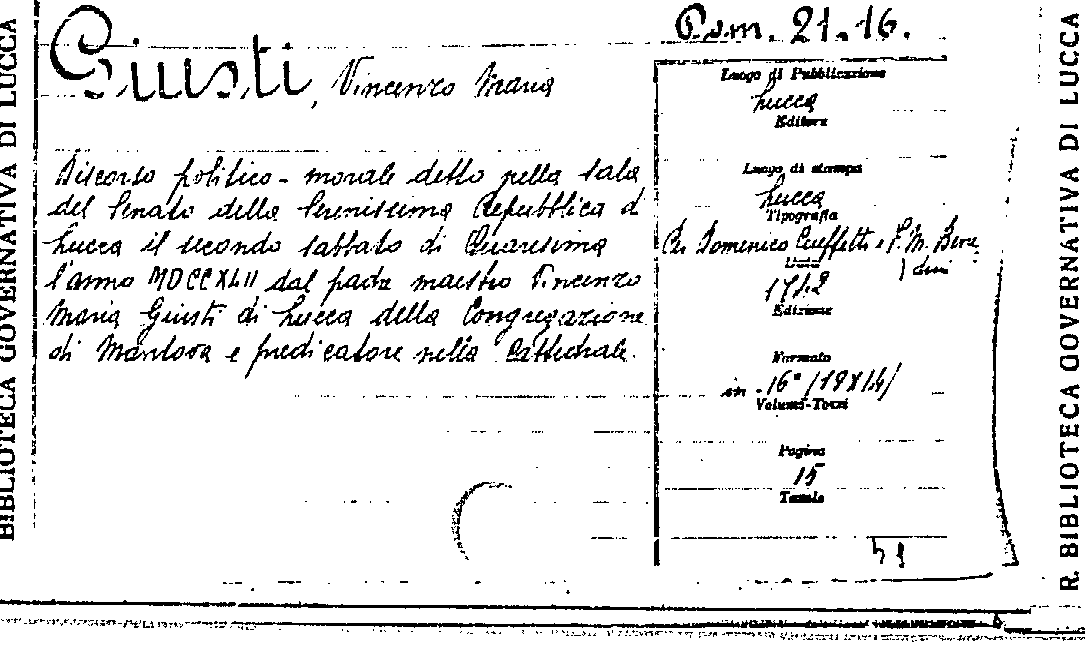 Pom. 21.16.
Giusti, Vincenzo Maria
Discorso politico-morale detto nella sala
del Senato della Serenissima Repubblica d
Lucca il secondo sabbato di Quaresima
l'anno MDCCXLII dal padre maestro Vincenzo
Maria Giusti di Lucca della Congregazione
di Mantova e predicatore nella Cattedrale.
Luogo di Pubblicazione
Lucca
Editore
Luogo di stampa
Lucca
Tipografia
Per Domenico Ciuffetti e F. M. Bene
dini
Data
1742
Edizione
Formato
in-16° (19x14)
Volumi-Tomi
Pagine
15
Tavole
BIBLIOTECA GOVERNATIVA DI LUCCA
R. BIBLIOTECA GOVERNATIVA DI LUCCA